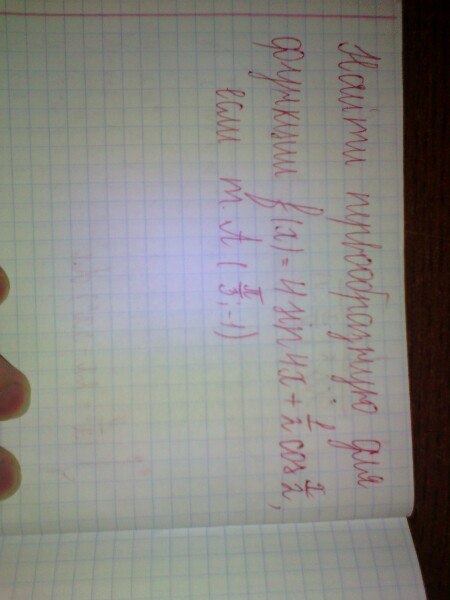 Найти первообразную для
функции f(x) = 4 sin 4x + 1/2 cos x/2,
если т. A (π/3; -1)